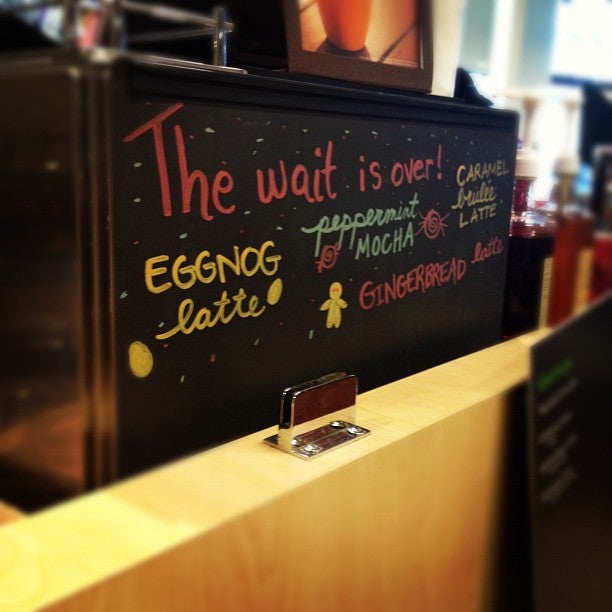 The wait is over!
EGGNOG
latte
peppermint
MOCHA
CARAMEL
brulle
LATTE
GINGERBREAD latte